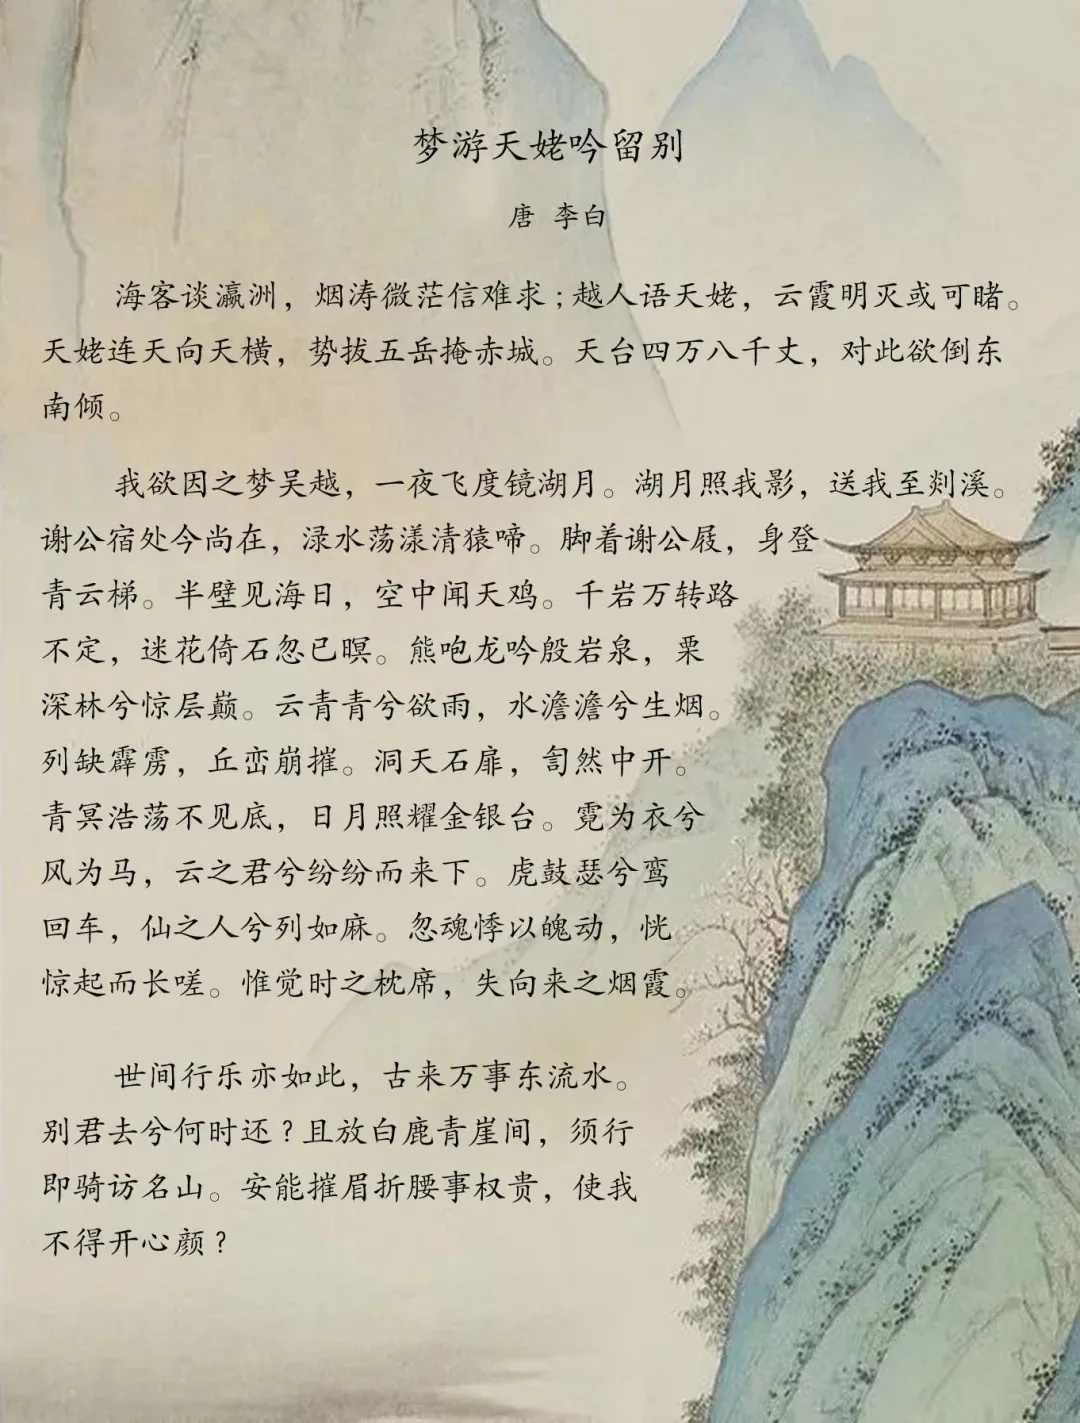 梦游天姥吟留别
唐 李白
海客谈瀛洲，烟涛微茫信难求；越人语天姥，云霞明灭或可睹。
天姥连天向天横，势拔五岳掩赤城。天台四万八千丈，对此欲倒东
南倾。
我欲因之梦吴越，一夜飞度镜湖月。湖月照我影，送我至剡溪。
谢公宿处今尚在，渌水荡漾清猿啼。脚着谢公屐，身登
青云梯。半壁见海日，空中闻天鸡。千岩万转路
不定，迷花倚石忽已暝。熊咆龙吟殷岩泉，栗
深林兮惊层巅。云青青兮欲雨，水澹澹兮生烟。
列缺霹雳，丘峦崩摧。洞天石扉，訇然中开。
青冥浩荡不见底，日月照耀金银台。霓为衣兮
风为马，云之君兮纷纷而来下。虎鼓瑟兮鸾
回车，仙之人兮列如麻。忽魂悸以魄动，恍
惊起而长嗟。惟觉时之枕席，失向来之烟霞。
世间行乐亦如此，古来万事东流水。
别君去兮何时还？且放白鹿青崖间，须行
即骑访名山。安能摧眉折腰事权贵，使我
不得开心颜？